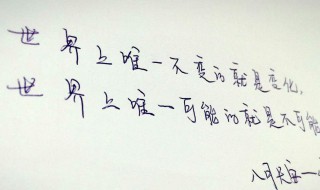 世界上唯一不变的就是变化,
世界上唯一可能的就是不可能
八可